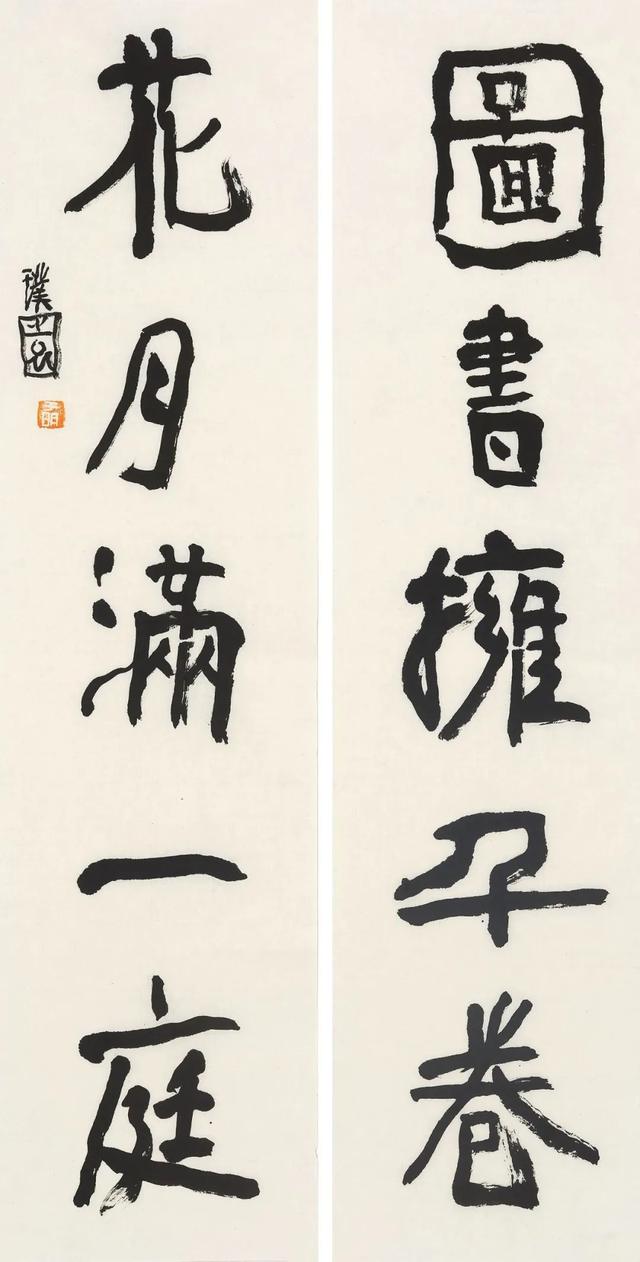 圖書擁千卷
花月滿一庭
璞